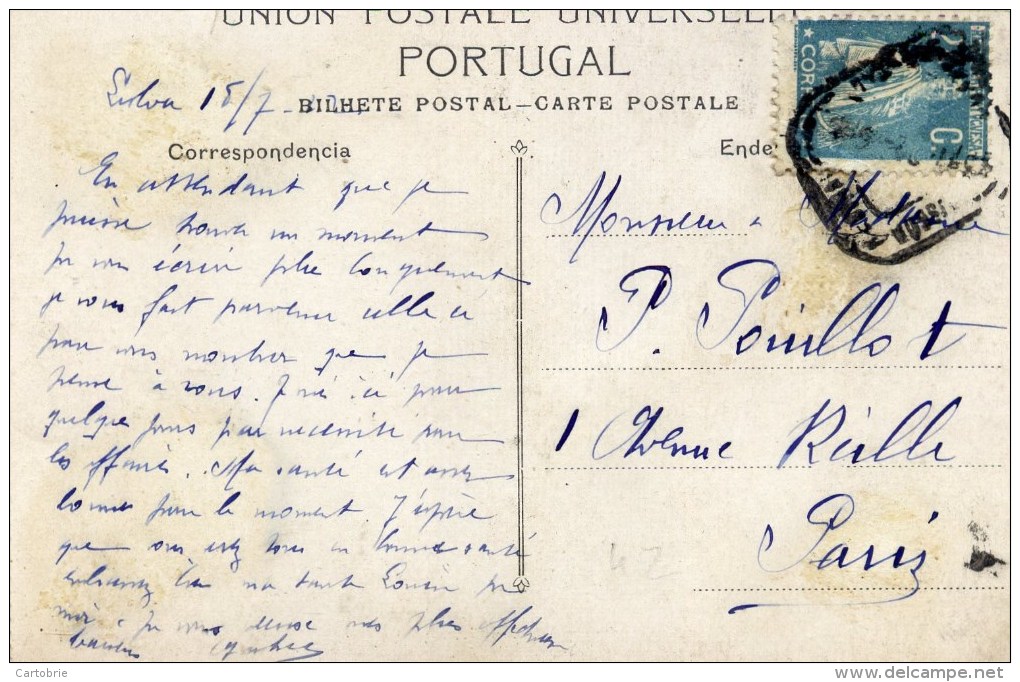 UNION POSTALE UNIVERSELLE
PORTUGAL
BILHETE POSTAL—CARTE POSTALE
Correspondencia
Ende
COR
C
15/7
En attendant que je
puisse trouver un moment
pr vous écrire plus longuement
je vous fait parvenir celle ci
pour vous montrer que je
pense à vous. ici pour
quelque jours par nécessité pour
les affaires. Ma santé est assez
bonne pour le moment J'espère
que vous tous en bonne santé
embrassez ma tante Louise pr
moi. je vous mes plus affectueux
baisers
Monsieur & Madame
P. Pouillot
1 Avenue Reille
Paris
42
Cartobrie
delcampe.net